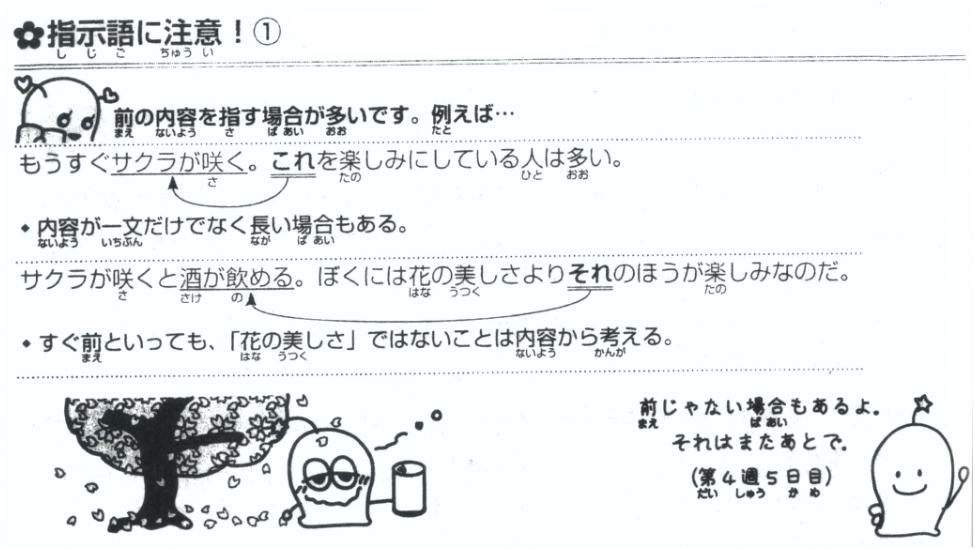 ✿指示語に注意！①
しじご ちゅうい
前の内容を指す場合が多いです。例えば…
まえ ないよう さ ばあい おお たと
もうすぐサクラが咲く。これを楽しみにしている人は多い。
さ たの ひと おお
◆ 内容が一文だけでなく長い場合もある。
ないよう いちぶん なが ばあい
サクラが咲くと酒が飲める。ぼくには花の美しさよりそれのほうが楽しみなのだ。
さ さけ の はな うつく たの
◆ すぐ前といっても、「花の美しさ」ではないことは内容から考える。
まえ はな うつく ないよう かんが
前じゃない場合もあるよ。
まえ ばあい
それはまたあとで。
（第４週５日目）
だい しゅう か め